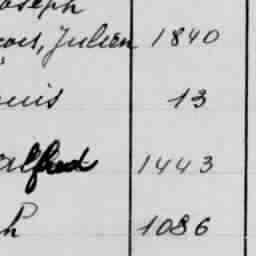 oseph
cois, Julien 1840
uis 13
Alfred 1443
h 1086